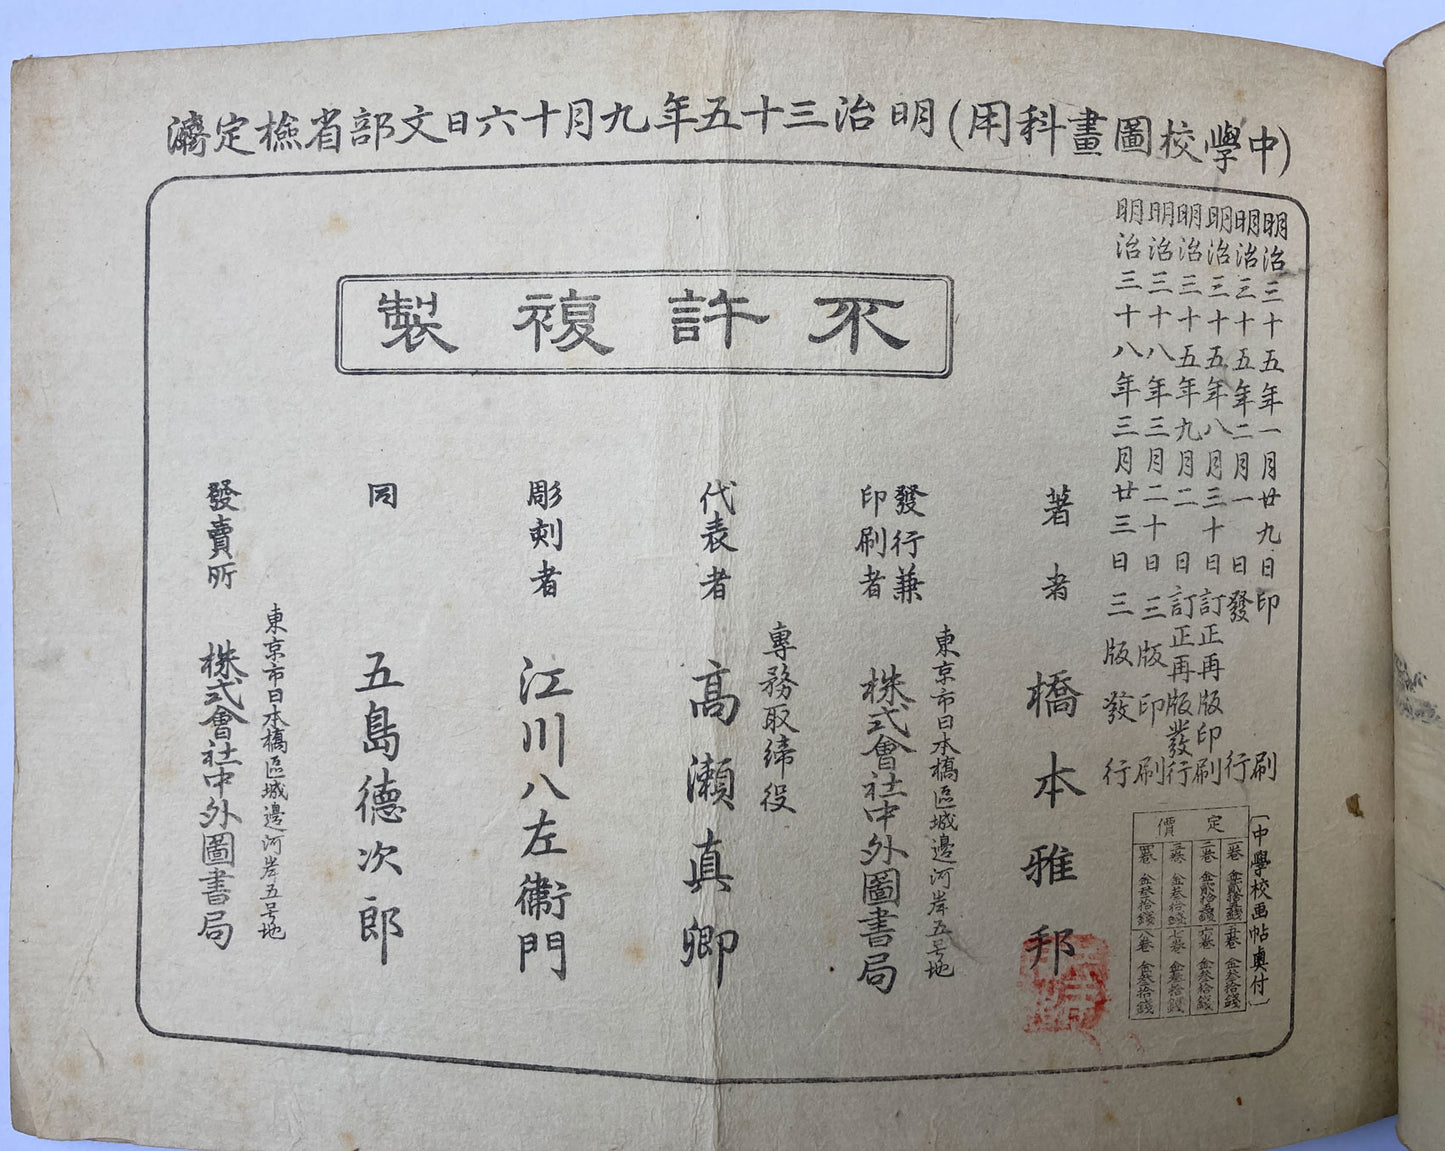 (中學校圖畫科用)明治三十五年九月十六日文部省檢定濟
明治三十五年一月廿九日印刷
明治三十五年二月一日發行
明治三十五年八月三十日訂正再版印刷
明治三十五年九月二日訂正再版發行
明治三十八年三月二十日三版印刷
明治三十八年三月廿三日三版發行
〔中學校画帖奥付〕
定價
一卷 金貳拾五錢
二卷 金貳拾五錢
三卷 金叄拾錢
四卷 金叄拾錢
五卷 金叄拾錢
六卷 金叄拾錢
七卷 金叄拾錢
八卷 金叄拾錢
不許複製
著者 橋本雅邦
東京市日本橋區城邊河岸五号地
發行兼印刷者 株式會社中外圖書局
專務取締役
代表者 高瀬真卿
彫刻者 江川八左衞門
同 五島德次郎
東京市日本橋區城邊河岸五号地
發賣所 株式會社中外圖書局